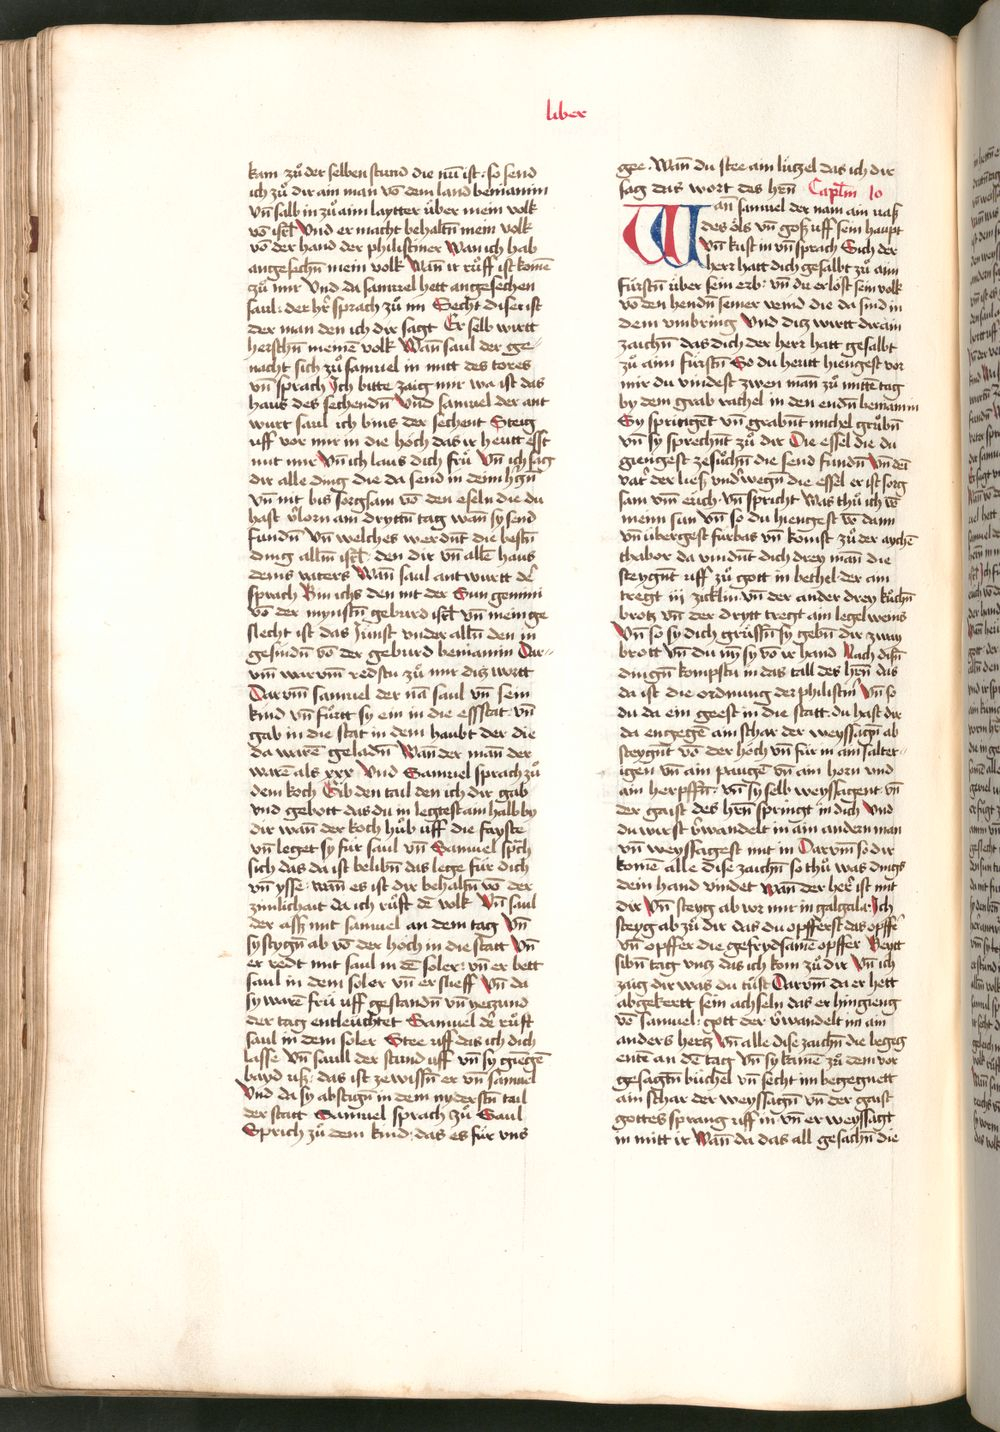 liber
kam zů der selben stund die nu᷑ ist · so send
ich zů dir ain man vō dem land beniamin
vn̄ salb in zů aim laytter über mein volk
vō isrl̄ Vnd er macht behaltn̄ mein volk
vō der hand der philistiner Wan ich hab
angesechn̄ mein volk Wan̄ ir růff ist komē
zů mir Vnd da samuel hett angesechen
saul : der hr̄ sprach zů im Secht diser ist
der man den ich dir sagt Er selb wirtt
herschn̄ meinē volk Wan̄ saul der ge-
nacht sich zů samuel in mitt des tores
vn̄ sprach Ich bitte zaig mir wa ist das
haus des sechendn̄ Vnd samuel der ant
wurt saul ich bins der sechent Steig
uff vor mir in die hoͤch das ir heutt esst
mit mir Vn̄ ich laus dich frü Vn̄ ich sag
dir alle ding die da send in deim hr̄gn̄
vn̄ nit bis sorgsam vō den eseln die du
hast v̄lorn am dryttn̄ tag wan̄ sy send
fundn̄ Vn̄ welches werdnt die bestn̄
ding alln̄ isrl̄ · den dir vn̄ allē haus
deins waters Wan̄ saul antwurtt der̄
sprach Bin ichs den nit der Sun gemini
vō der mynstn̄ geburd isrl̄ vn̄ mein ge
slecht ist das hinst vnder alln̄ den in
gesindn̄ vō der geburd beniamin Dar-
vm̄ warvm̄ redstu zů mir ditz wortt
Darvm̄ samuel der nā saul vn̄ sein
kind vn̄ fůrtt sy ein in die essstat · vn̄
gab in die stat in dem haubt der die
da warē geladn̄ Wan̄ der man̄ der
warē als xxx Vnd Samuel sprach zů
dem koch Gib den tail den ich dir gab
vnd gebott das du in legtest ain halb by
dir wan̄ der koch hůb uff die fayste
vn̄ leget sy für saul vn̄ Samuel spch
sich das da ist belibn̄ das lege für dich
vn̄ ysse · wan̄ es ist dir behaltn̄ vō der
zimlichait da ich růft dē volk Vn̄ saul
der ass mit samuel an dem tag Vn̄
sy stygn̄ ab vō der hoch in die statt Vn̄
er redt mit saul in dē soler : vn̄ er bett
saul in dem soler vn̄ er slieff Vn̄ da
sy warē frü uff gestandn̄ vn̄ yetzund
der tag entleüchtet Samuel der̄ růft
saul in dem soler Stee uff das ich dich
lasse Vn̄ saull der stund uff vn̄ sy giengē
bayd uss : das ist zewissn̄ er vn̄ samuel
Vnd da sy abstign̄ in dem nyderstn̄ tail
der statt Samuel sprach zů Saul
Sprich zů dem kind : das es für vns
gee · Wan̄ du stee ain lützel das ich dir
sag das wort des hr̄n Caplm̄ 10
Wan̄ samuel der nam ain vass
des oͤls vn̄ goss uff sein haupt
vn̄ kust in vn̄ sprach Sich der
herr hatt dich gesalbt zů aim
fürstn̄ über sein erb : vn̄ du erlost sein volk
vō den hendn̄ seiner veind die da sind in
dem vmbring Vnd ditz wirtt dir ain
zaichn̄ das dich der herr hatt gesalbt
zů aim fürstn̄ So du heutt hiengest vor
mir du vindest zwen man̄ zů mittē tag
by dem grab rachel in den endn̄ beniamin
Sy springēt vn̄ grabnt michel grůbn̄
vn̄ sy sprechnt zů dir Die essel die du
giengest zesůchn̄ die send fundn̄ Vn̄ dei
vat̄ der liess vnd̄wegn̄ die essel er ist sorg
sam vm̄ euch · vn̄ spricht Was thů ich vō
meim sun vn̄ so du hiengest vō dann
vn̄ übergest fürbas vn̄ komst zů der aychē
thabor da vindnt dich drey man̄ die
steygnt uff zů gott in bethel · der ain
tregt iij zicklin · vn̄ der ander drey kůchn̄
brotz vn̄ der drytt tregt ain legel weins
Vn̄ so sy dich grüssn̄ sy gebn̄ dir zway
brott vn̄ du ny̆ sy vō ir hand Nach disn̄
dingn̄ kompstu in das tall des hr̄n das
da ist die ordnung der philistin̄ Vn̄ so
du da ein geest in die statt · du hast dir
da engegē ain schar der weyssagn̄ ab
steygnt vō der hoͤch vn̄ für in ain salter-
igen vn̄ ain paugē vn̄ ain horn vnd
ain herpffn̄ : vn̄ sy selb weyssagent vn̄
der gaist des hr̄n springt in dich Vnd
du wirst v̄wandelt in ain andern man
vn̄ weyssagest mit in Darvm̄ so dir
komē alle dise zaichn̄ so thů was dings
dein hand vindet Wan̄ der her̄ ist mit
dir Vn̄ steyg ab vor mir in galgala · Ich
steyg ab zů dir das du opfferst das opffe᷑
vn̄ opffer die gefrydsamē opffer Beytt
sibn̄ tag vntz das ich kom zů dir Vn̄ ich
zaig dir was du tůst Darvm̄ da er hett
abgekertt sein achseln das er hingieng
vō samuel : gott der v̄wandelt im ain
anders hertz Vn̄ alle dise zaichn̄ die begeg
ente an dē tag Vn̄ sy kamē zů dem vor
gesagtn̄ büchel vn̄ secht im begegnett
ain schar der weyssagn̄ vn̄ der gaist
gottes sprang uff in · vn̄ er weyssagt
in mitt ir Wan̄ da das all gesachn̄ die